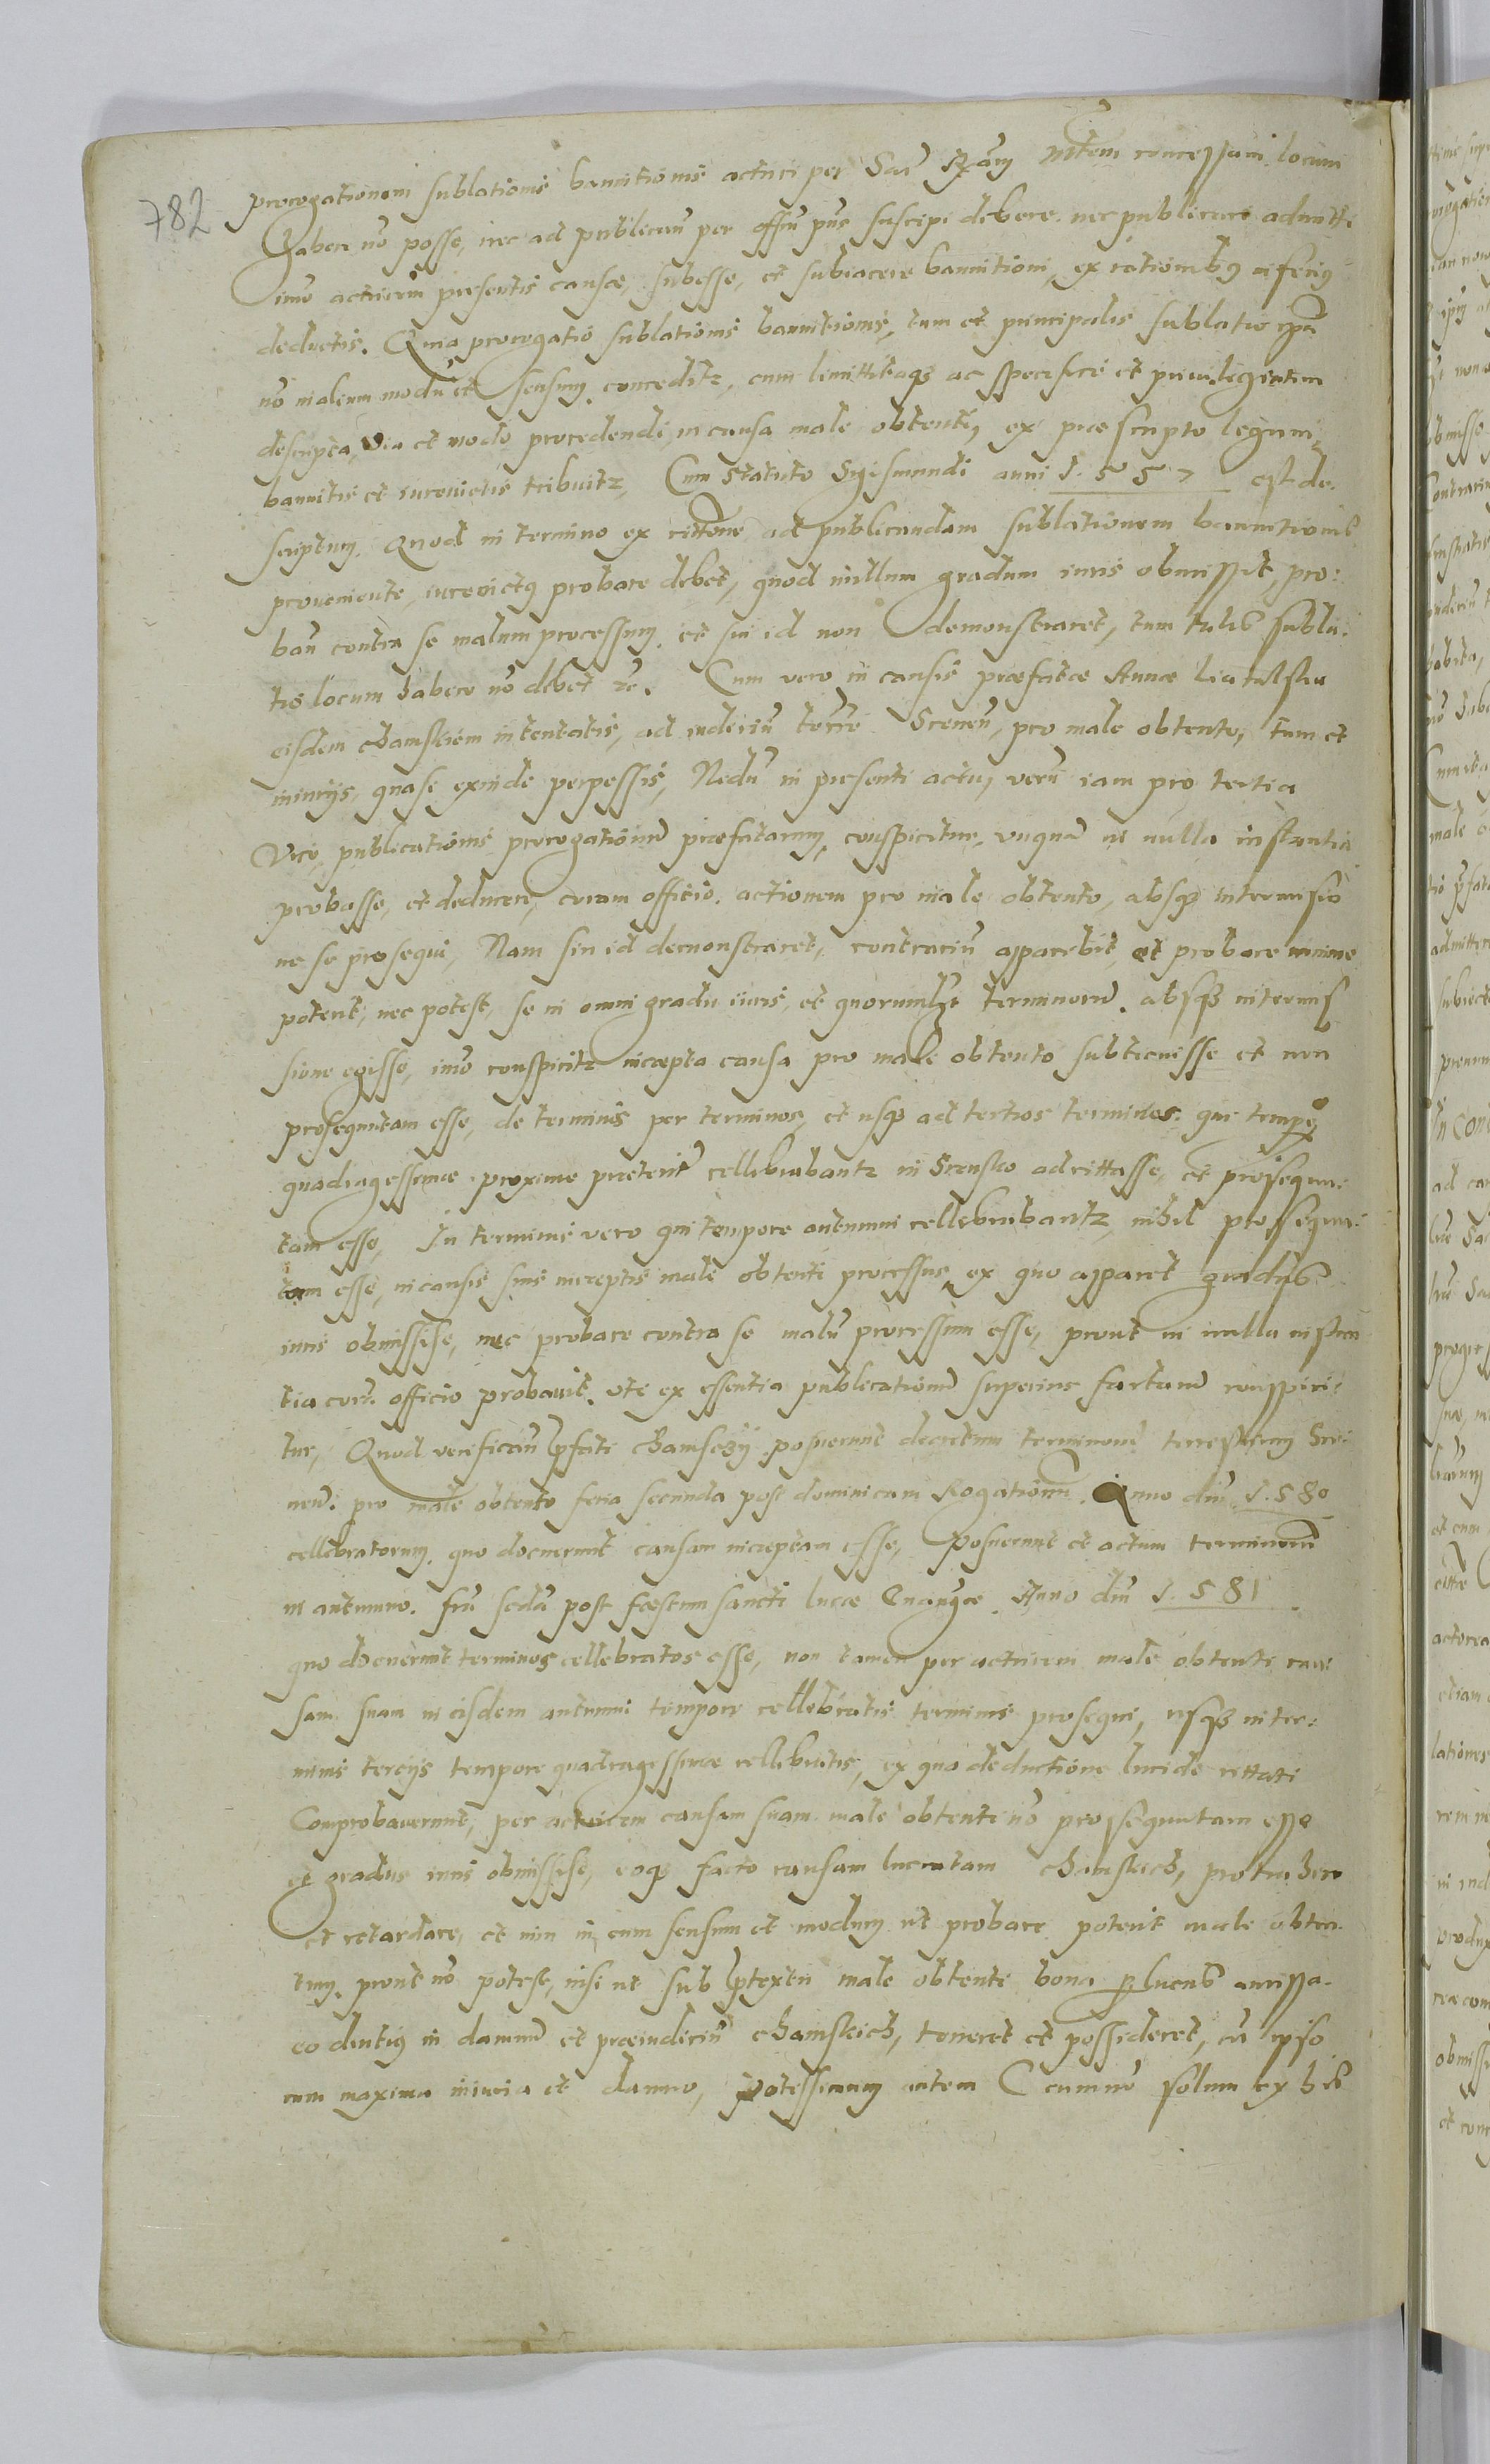 782
prorogationem sublationis bannitionis actrici per Sac̃ R̃am Mtem concessam locum
habere nõ posse, nec ad publicam̃ per offm̃ pñs suscipi debere. nec publicare admitti
imo actricem presentis causæ, subesse, et subiacere bannitioni, ex rationib9 inferi9
deductis. Quia prorogatio sublationis bannitionis, tum et principalis sublatio ipã
nõ in alium modũ et sensum conceditr, cum limittibq3 ac specifice et privilegiatim
descripta, via et modo procedendi, in causa male obtenti, ex præscripto legum,
bannitis et iurevictis tribuitr, Cum Statuto Sigismundi anni 1.5 5 7 est de-
scriptum. Quod in termino ex cittone ad publicandam sublationem bannitionis
proveniente, iurevict9 probare debet, quod nullum gradum iuris obmissit, pro:
ban̄ contra se malum processum. et sin id non demonstraret, tum talis subla-
tis locum habere nõ debet etc. Cum vero in causis præfatæ Annæ
eisdem Chamskiem intentatis, ad iudiciũ terrẽ Scenen̄, pro male obtento, tum et
iniuriis, quasi exinde perpessis, Nedũ in presenti actu, verũ iam pro tertia
vice, publicationis prorogationũ præfatarum, conspicitur, unquã in nulla instantia
probasse, et deducere, coram officio. actionem pro male obtento, absq3 intermisio
ne se prosequi, Nam sin id demonstraret, contrariũ apparebit, et probare minime
poterit, nec potest, se in omni gradu iuris, et quorumlibet terminorũ. absq3 intermis
sione egisse, imo conspicitr incæpta causa pro male obtento subticuisse et non
prosequutam esse, de terminis per terminos, et usq3 ad tertios terminos. qui tempore
quadragessimæ proxime præterit̃ cellebrabantr in Scensko adcittasse, et prosequu-
tam esse, In terminis vero qui tempore autumni cellebrabantr, nihil prossequu-
tam esse, in causis suis inceptis male obtenti processus, ex quo apparet gradus
iuris obmissise, nec probare contra se malũ processum esse, prout in nulla instan
tia cor̃. officio probavit. uti ex essentia publicationũ superius factarũ conspici-
tur, Quod verifican̄ p̃fati Chamsczÿ posuerunt decretum terminorũ terrestrium Sce-
nen̄. pro male obtento feria secunda post dominicam Rogationũ Anno dm̃ 1.580
cellebratorum, quo docuerunt causam inceptam esse, Posuerunt et actum terminorũ
in autumno. fria scda post fæstum sancti lucæ Evangæ Anno dm̃ 1.5 81
quo docuerunt terminos cellebratos esse, non tamen per actricem male obtenti cau-
sam suam in eisdem autumni tempore cellebratis terminis prosequi, usq3 in ter-
minis terciis tempore quadragessimæ cellebratis, ex quo deductione lucide cittati
Comprobaverunt, per actricem causam suam male obtenti nõ prossequutam esse
et gradus iuris obmissise, eoq3 facto causam lucratam Chamskich, protrahere
et retardare, et non in eum sensum et modum ut probare poterit male obten-
tum. prout nõ potest, nisi ut sub p̃textu male obtenti bona p̱ lucrũ amissa.
eo diuti9 in damnũ et præiudiciũ Chamskich, teneret et possideret, cũ ipso
cum maxima iniuria et damno, Potissimum autem Cum nõ solum ex his